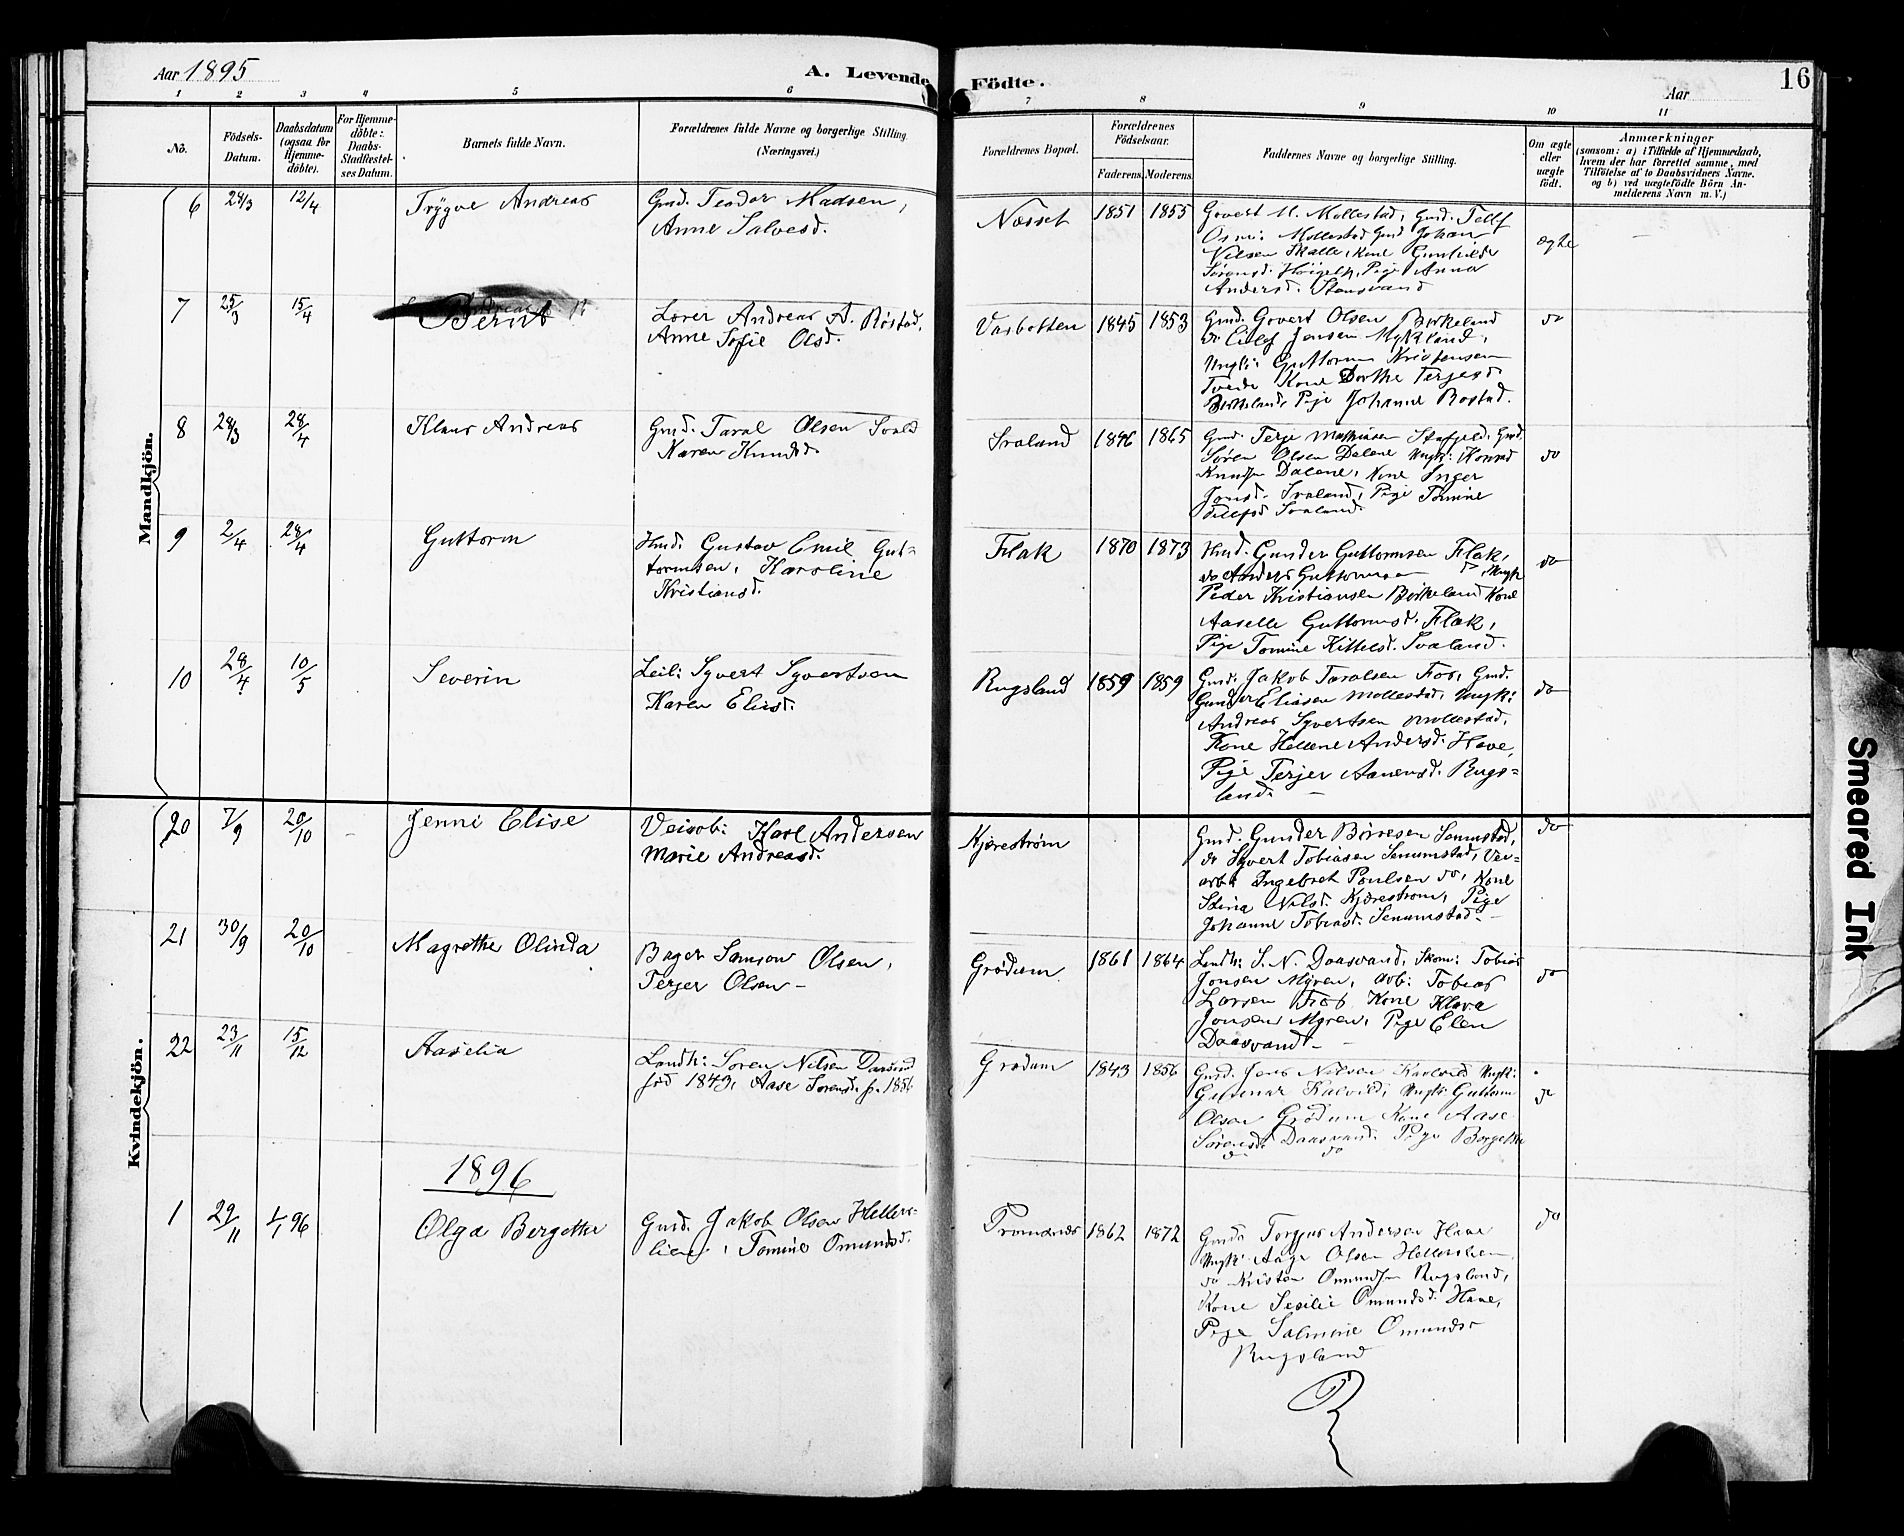 Aar 1895
A. Levende Födte.
16
Aar
1 2 3 4 5 6 7 8 9 10 11
No.
Födsels-Datum.
Daabsdatum (ogsaa for Hjemme-döbte).
For Hjemme-döbte: Daabs-Stadfestel-ses Datum.
Barnets fulde Navn.
Forældrenes fulde Navne og borgerlige Stilling. (Næringsvei.)
Forældrenes Bopæl.
Forældrenes Födselsaar.
Faderens. Moderens.
Faddernes Navne og borgerlige Stilling.
Om ægte eller uægte födt.
Anmærkninger
(saasom: a) i Tilfælde af Hjemmedaab,
hvem der har forrettet samme, med
Tilföielse af to Daabsvidners Navne.
og b) ved uægtefödte Börn An-
melderens Navn m. V.)
Mandkjön.
6 24/3 12/4 Trygve Andreas
Gmd. Teodor Madsen,
Anne Salvesd.
Næsset 1851 1855
Govert M. Mollestad, Gmd. Tellef
Mollestad Gmd Johan
Nilsen Skalle, Kone Gunhilde
Sørensd. Pige Anna
Andersd. Stensvand
ægte
7 25/3 15/4 Bernt
Lorer Andreas A. Røstad,
Anne Sofie Olsd.
Vasbotten 1845 1853
Gmd. Govert Olsen Birkeland
do Eilef Jensen Mykland,
Ungk: Guttorm Kristensen
Tvede Kone Dorthe Terjesd.
Birkeland, Pige Johanne Rostad.
do
8 24/3 28/4 Klaus Andreas
Gmd. Taral Olsen Svald
Karen Knudsd.
Svaland 1846 1865
Gmd. Terje Mathiasen Gmd.
Søren Olsen Dalene Ungk: Konrad
Knudsn Dalene, Kone Inger
Jonsd. Svaland, Pige Tomine
Tellefsd Svaland.
do
9 2/4 28/4 Guttorm
Hmd. Gustav Emil Gut-
tormsen, Karoline
Kristiansd.
Flak 1870 1873
Hmd. Gunder Guttormsen Flak,
do Anders Guttormsen Ungk
Peder Kristiansen Birkeland Kone
Aaselle Guttormsd. Flak,
Pige Tomine Kittelsd. Svaland.
do
10 28/4 10/5 Severin
Leil: Syvert Syvertsen
Karen Eliasd.
Rugsland 1859 1859
Gmd. Jakob Taralsen Fos, Gmd.
Gunder Eliasen Mollestad, Ungk:
Andreas Syvertsen Mollestad,
Kone Hellene Andersd. Have,
Pige Terjer Aanensd. Rugs-
land. —
do
Kvindekjön.
20 7/9 20/10 Jenni Elise
Veiarb: Karl Andersen
Marie Andreasd.
Kjørestrøm
Gmd. Gunder Børresen Senumstad,
do Syvert Tobiasen Senumstad, Vei-
arb: Ingebret Poulsen do, Kone
Stina Nilsd. Kjørestrøm, Pige
Johanne Tobiasd. Senumstad. —
do
21 30/9 20/10 Magrethe Olinda
Bager Samson Olsen,
Terjer Olsen —
Grødum 1861 1864
Landh: S. N. Daasvand, Skom: Tobias
Jonsen Myren, Arb: Tobias
Larsen Fos Kone Klara
Jonsen Myren, Pige Elen
Daasvand —
do
22 23/11 15/12 Aaselia
Landh: Soren Nilsen Daasvand
fød 1843, Aase Sorensd. f. 1856
Grødum 1843 1856
Gmd. Jens Nilsen Kalvild Ungk:
Gunnar Kalvild, Ungk: Guttorm
Olsen Grødum Kone Aase
Sørensd. Daasvand Pige Borgethe
do do
do
1896
1 29/11 1/1 96 Olga Bergethe
Gmd. Jakob Olsen Hellers-
lien, Tomine Omundsd.
Tromsnes 1862 1872
Gmd. Torjus Andersen Have
Ungk: Aage Olsen Hellerslien
do Kristen Omundsn Rugsland,
Kone Sesilie Omundsd. Have,
Pige Salmine Omundsd
Rugsland
do
Smeared Ink